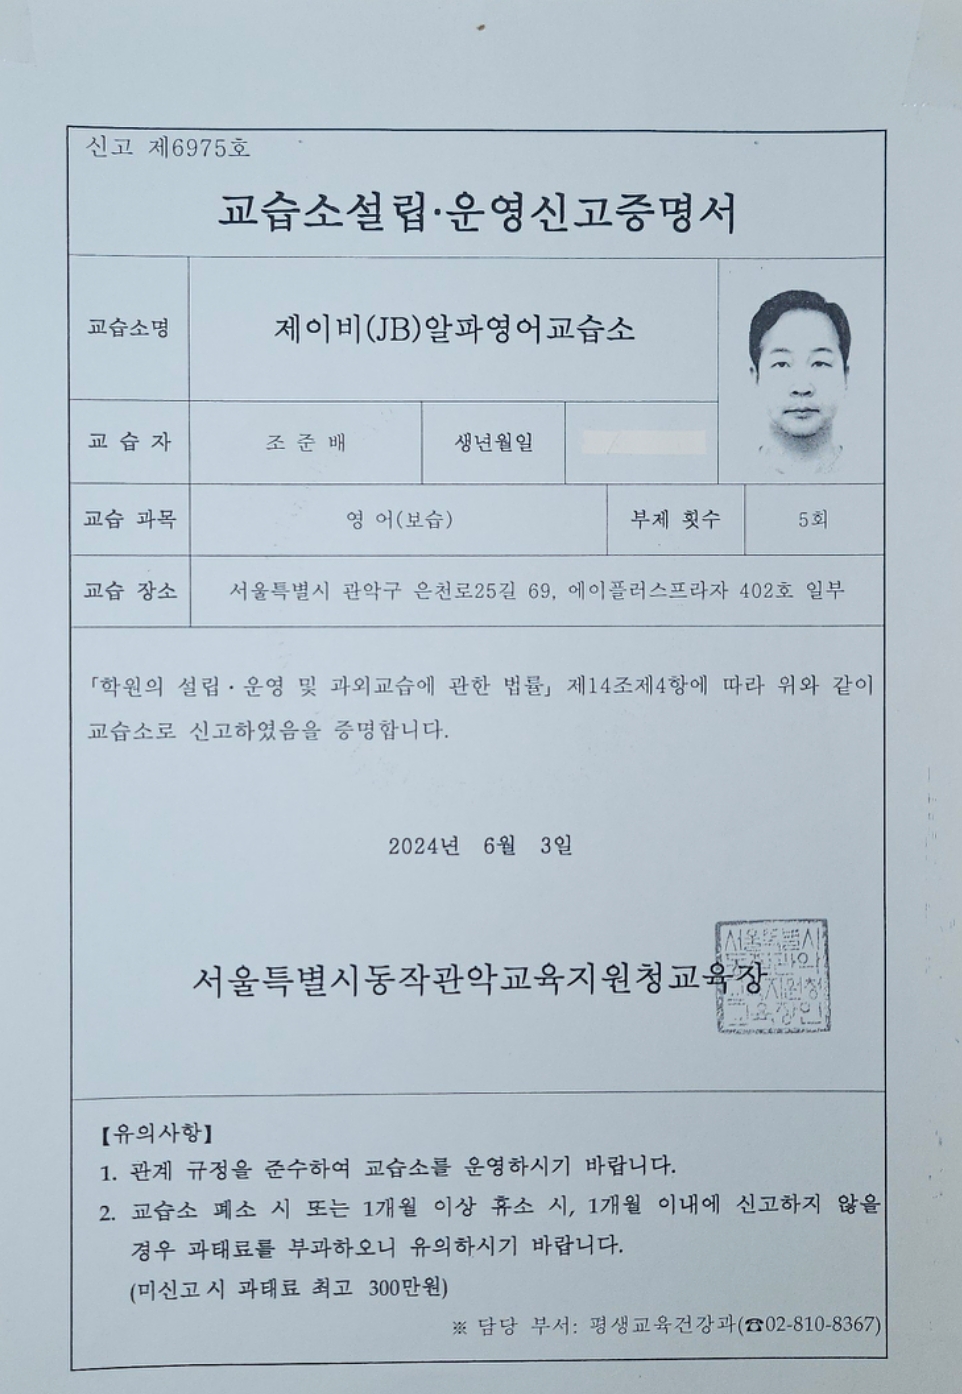 신고 제6975호
교습소설립·운영신고증명서
교습소명 제이비(JB)알파영어교습소
교 습 자 조 준 배 생년월일
교습 과목 영 어(보습) 부제 횟수 5회
교습 장소 서울특별시 관악구 은천로25길 69, 에이플러스프라자 402호 일부
「학원의 설립·운영 및 과외교습에 관한 법률」 제14조제4항에 따라 위와 같이
교습소로 신고하였음을 증명합니다.
2024년 6월 3일
서울특별시동작관악교육지원청교육장
서울특별시
동작관악
교육지원청
교육장인
【유의사항】
1. 관계 규정을 준수하여 교습소를 운영하시기 바랍니다.
2. 교습소 폐소 시 또는 1개월 이상 휴소 시, 1개월 이내에 신고하지 않을
경우 과태료를 부과하오니 유의하시기 바랍니다.
(미신고시 과태료 최고 300만원)
※ 담당 부서: 평생교육건강과(☎02-810-8367)